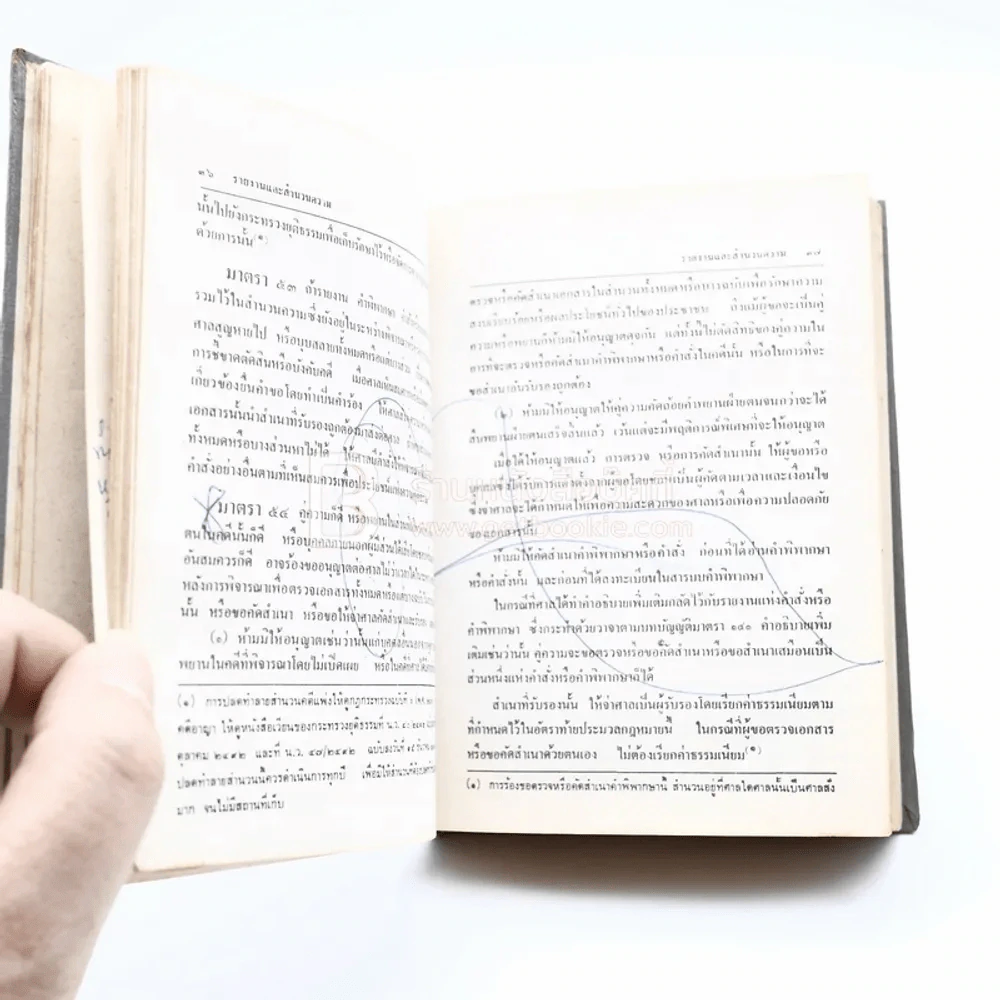 ๓๖ รายงานและสำนวนความ
นั้นไปยังกระทรวงยุติธรรมเพื่อเก็บรักษาไว้หรือจัดการ
ด้วยการนั้น(๑)
มาตรา ๕๓ ถ้ารายงาน คำพิพากษา
รวมไว้ในสำนวนความซึ่งยังอยู่ในระหว่างพิจารณาหรือ
ศาลสูญหายไป หรือบุบสลายทั้งหมดหรือแต่บางส่วน
การชี้ขาดตัดสินหรือบังคับคดี เมื่อศาลเห็นสมควร
เกี่ยวข้องยื่นคำขอโดยทำเป็นคำร้อง ให้ศาลสั่ง
เอกสารนั้นนำสำเนาที่รับรองถูกต้องมาส่งต่อศาล
ทั้งหมดหรือบางส่วนหาไม่ได้ ให้ศาลมีคำสั่งให้
คำสั่งอย่างอื่นตามที่เห็นสมควรเพื่อประโยชน์แห่งความยุติธรรม
มาตรา ๕๔ คู่ความก็ดี หรือพยานในส่วนที่
ตนในคดีนั้นก็ดี หรือบุคคลภายนอกผู้มีส่วนได้เสียโดยชอบ
อันสมควรก็ดี อาจร้องขออนุญาตต่อศาลไม่ว่าเวลาใด
หลังการพิจารณาเพื่อตรวจเอกสารทั้งหมดหรือแต่บางฉบับใน
นั้น หรือขอคัดสำเนา หรือขอให้จ่าศาลคัดสำเนาและรับรอง
(๑) ห้ามมิให้อนุญาตเช่นว่านั้นแก่บุคคลอื่นนอกจาก
พยานในคดีที่พิจารณาโดยไม่เปิดเผย หรือในคดีที่ศาลได้
(๑) การปลดทำลายสำนวนคดีแพ่งให้ดูกฎกระทรวงฉบับที่
คดีอาญา ให้ดูหนังสือเวียนของกระทรวงยุติธรรมที่ น.ว.
ตุลาคม ๒๔๙๒ และที่ น.ว. ๔๗/๒๔๙๒ ฉบับลงวันที่
ปลดทำลายสำนวนนี้ควรดำเนินการทุกปี เพื่อมิให้สำนวนคดี
มาก จนไม่มีสถานที่เก็บ
รายงานและสำนวนความ ๓๗
ตรวจหรือคัดสำเนาเอกสารในสำนวนทั้งหมดหรือบางฉบับเพื่อรักษาความ
สงบเรียบร้อยหรือผลประโยชน์ทั่วไปของประชาชน ถึงแม้ผู้ขอจะเป็นคู่
ความหรือพยานก็ห้ามมิให้อนุญาตดุจกัน แต่ทั้งนี้ไม่ตัดสิทธิของคู่ความใน
การที่จะตรวจหรือคัดสำเนาคำพิพากษาหรือคำสั่งในคดีนั้น หรือในการที่จะ
ขอสำเนาอันรับรองถูกต้อง
(๒) ห้ามมิให้อนุญาตให้คู่ความคัดถ้อยคำพยานฝ่ายตนจนกว่าจะได้
สืบพยานฝ่ายตนเสร็จสิ้นแล้ว เว้นแต่จะมีพฤติการณ์พิเศษที่จะให้อนุญาต
เมื่อได้ให้อนุญาตแล้ว การตรวจ หรือการคัดสำเนานั้น ให้ผู้ขอหรือ
บุคคลซึ่งได้รับการแต่งตั้งจากผู้ขอโดยชอบเป็นผู้คัดตามเวลาและเงื่อนไข
ซึ่งจ่าศาลจะได้กำหนดให้เพื่อความสะดวกของศาลหรือเพื่อความปลอดภัย
ของเอกสารนั้น
ห้ามมิให้คัดสำเนาคำพิพากษาหรือคำสั่ง ก่อนที่ได้อ่านคำพิพากษา
หรือคำสั่งนั้น และก่อนที่ได้ลงทะเบียนในสารบบคำพิพากษา
ในกรณีที่ศาลได้ทำคำอธิบายเพิ่มเติมกลัดไว้กับรายงานแห่งคำสั่งหรือ
คำพิพากษา ซึ่งกระทำด้วยวาจาตามบทบัญญัติมาตรา ๑๔๑ คำอธิบายเพิ่ม
เติมเช่นว่านั้น คู่ความจะขอตรวจหรือขอคัดสำเนาหรือขอสำเนาเสมือนเป็น
ส่วนหนึ่งแห่งคำสั่งหรือคำพิพากษาก็ได้
สำเนาที่รับรองนั้น ให้จ่าศาลเป็นผู้รับรองโดยเรียกค่าธรรมเนียมตาม
ที่กำหนดไว้ในอัตราท้ายประมวลกฎหมายนี้ ในกรณีที่ผู้ขอตรวจเอกสาร
หรือขอคัดสำเนาด้วยตนเอง ไม่ต้องเรียกค่าธรรมเนียม(๑)
(๑) การร้องขอตรวจหรือคัดสำเนาคำพิพากษานี้ สำนวนอยู่ที่ศาลใดศาลนั้นเป็นศาลสั่ง